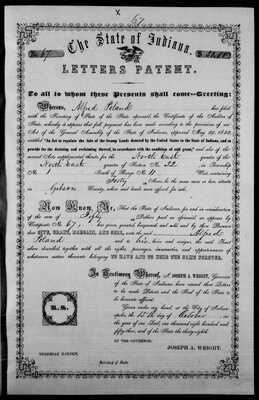 67
The State of Indiana.
No. 67
LETTERS PATENT.
To all to whom these Presents shall come—Greeting:
Whereas, Alfred Poland has filed
with the Secretary of State of the State aforesaid the Certificate of the Auditor of
State, whereby it appears that full payment has been made according to the provisions of an
Act of the General Assembly of the State of Indiana, approved May 29, 1852,
entitled "An Act to regulate the sale of the Swamp Lands donated by the United States to the State of Indiana, and to
provide for the draining and reclaiming thereof, in accordance with the condition of said grant," and also of the
several Acts supplemental thereto, for the North East quarter of the
North East quarter of Section 22 in Township
No. 1 South of Range No. 11 West containing
Forty Acres be the same more or less, situate
in Gibson County, when said lands were offered for sale.
Now Know Ye, That the State of Indiana, for and in consideration
of the sum of Fifty Dollars paid as aforesaid as appears by
Certificate No. 67, has given, granted, bargained and sold, and by these Presents
does GIVE, GRANT, BARGAIN, AND SELL, unto the said Alfred
Poland and to his heirs and assigns, the said Tract
above described, together with all the rights, privileges, immunities, and appurtenances of
whatsoever nature thereunto belonging TO HAVE AND TO HOLD THE SAME FOREVER.
In Testimony Whereof, I, JOSEPH A. WRIGHT, Governor
of the State of Indiana, have caused these Letters
to be made Patent, and the Seal of the State to
be hereunto affixed.
Given under my hand, at the City of Indianapolis, the 15th day of October in
the year of our Lord, one thousand eight hundred and
fifty-three, and of the State the thirty-eighth.
BY THE GOVERNOR:
JOSEPH A. WRIGHT.
L.S.
NEHEMIAH HAYDEN,
Secretary of State.